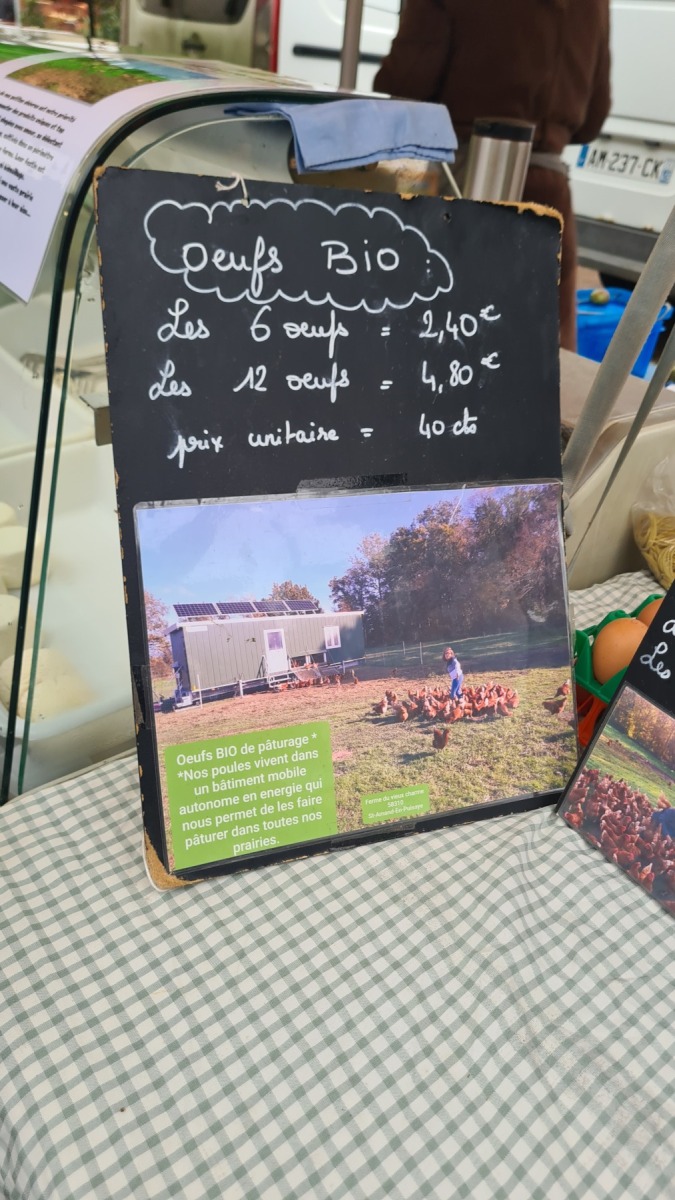 Oeufs Bio
Les 6 oeufs = 2,40€
Les 12 oeufs = 4,80€
prix unitaire = 40 cts
Oeufs BIO de pâturage *
*Nos poules vivent dans
un bâtiment mobile
autonome en energie qui
nous permet de les faire
pâturer dans toutes nos
prairies.
Ferme du vieux charme
58310
St-Amand-En-Puisaye
AM-237-CK
Les